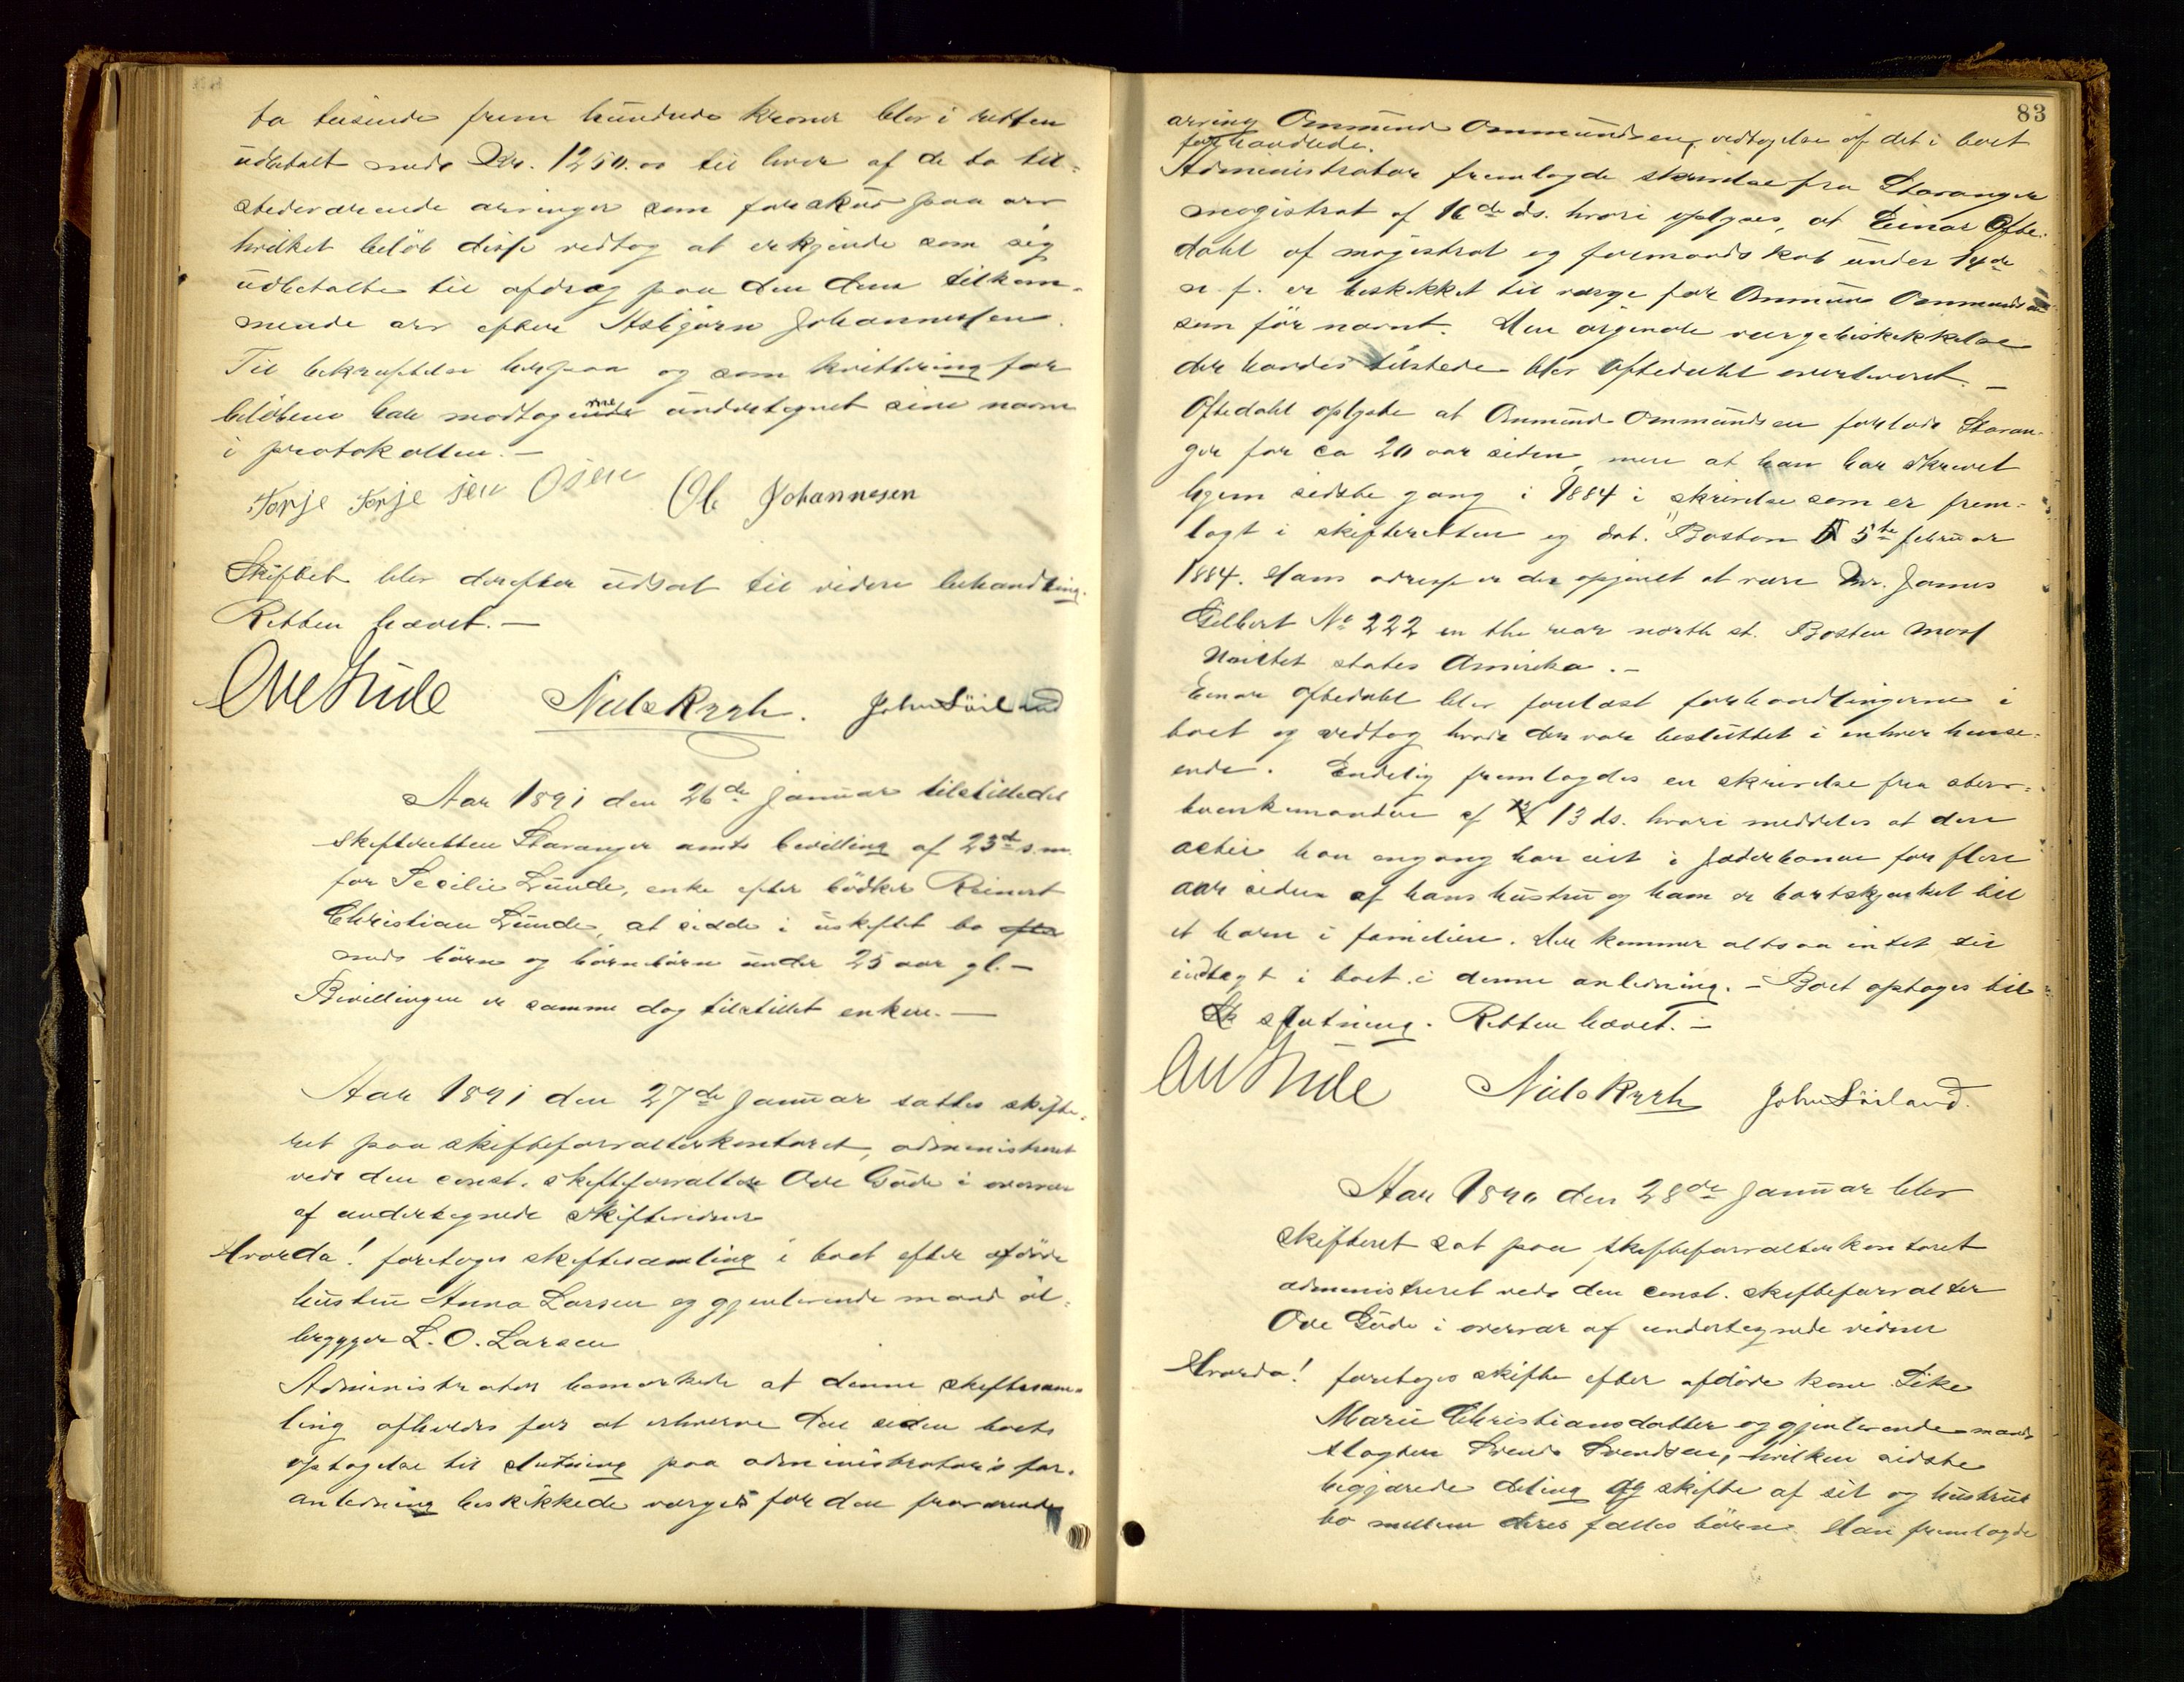 to tusinde fem hundrede kroner blev i retten
udbetalt med Kr. 1250.00 til hver af de to til-
stedeværende arvinger som forskud paa arv
hvilket beløb disse vedtog at erkjende som sig
udbetalte til afdrag paa den dem tilkom-
mende arv efter Asbjørn Johannessen.
Til bekræftelse herpaa og som kvittering for
beløbene har modtagerne undertegnet sine navne
i protokollen. —
Torje Torje sen Osen Ole Johannesen
Skiftet blev derefter udsat til videre behandling.
Retten hævet. —
Ove Gude Niels Rygh. John Söiland
Aar 1891 den 26de Januar tilstilledes
skifteretten Stavanger amts bevilling af 23d s.m.
for Secilie Lunde, enke efter bødker Reinert
Christian Lunde, at sidde i uskiftet bo efter
med børn og børnebørn under 25 aar gl. —
Bevillingen er samme dag tilstillet enken. —
Aar 1891 den 27de Januar sattes skifte-
ret paa skifteforvalterkontoret, administreret
ved den const. skifteforvalter Ove Gude i overvær
af undertegnede skiftevidner
Hvorda! foretoges skiftesamling i boet efter afdøde
hustru Anna Larsen og gjenlevende mand øl-
brygger L. O. Larsen
Administrator bemærkede at denne skiftesam-
ling afholdes for at erhverve den siden boets
optagelse til slutning paa administrators for-
anledning beskikkede værges for den fraværende
83
arving Ommund Ommundsen, vedtagelse af det i boet
forhandlede.
Administrator fremlagde skrivelse fra Stavanger
magistrat af 16de ds. hvori oplyses, at Einar Ofte-
dahl af magistrat og formandskab under 14de
n. f. er beskikket til værge for Ommund Ommundsen
som før nævnt. Den orginale værgebeskikkelse
der havdes tilstede blev Oftedahl overleveret. —
Oftedahl oplyste at Ommund Ommundsen forlod Stavan-
ger for ca 20 aar siden, men at han har skrevet
hjem sidste gang i 1884 i skrivelse som er frem-
lagt i skifteretten og dat. "Boston 5te februar
1884. Hans adresse er der opgivet at være Mr. James
Gilbert No 222 en the rear north st. Boston Mass
Unitet states Amirika. —
Einar Oftedahl blev forelæst forhandlingerne i
boet og vedtog hvad der var besluttet i enhver hense-
ende. Endelig fremlagdes en skrivelse fra
af 13 ds. hvori meddeles at den
actie han engang har eiet i Jæderbanen for flere
aar siden af hans hustru og ham er bortskjænket til
et barn i familien. Der kommer altsaa intet til
indtægt i boet i denne anledning. — Boet optages til
slutning. Retten hævet. —
Ove Gude Niels Rygh John Söiland.
Aar 1890 den 28de Januar blev
skifteret sat paa skifteforvalterkontoret
administreret ved den const. skifteforvalter
Ove Gude i overvær af undertegnede vidner
Hvorda! foretoges skifte efter afdøde kone
Marie Christiansdatter og gjenlevende mand
slagter Svend Svendsen, hvilken sidste
begjærede deling og skifte af sit og hustrus
bo mellem deres fælles børn. Han fremlagde